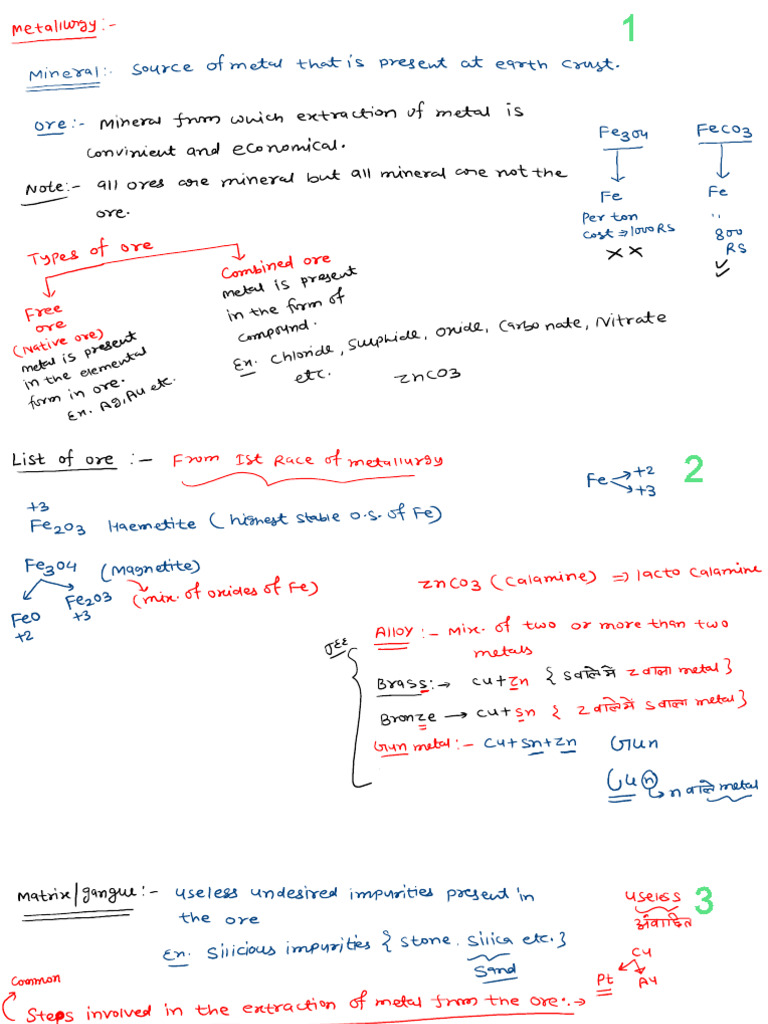 Metallurgy:-
1
Mineral:- Source of metal that is present at earth crust.
ore:- Mineral from which extraction of metal is
convinient and economical.
Note:- all ores are mineral but all mineral are not the
ore.
Fe3O4
FeCO3
Fe
Fe
Per ton
cost ⇒ 1000 RS
,,
800
RS
Types of ore
Free
ore
(Native ore)
metal is present
in the elemental
form in ore.
Ex. Ag, Au etc.
Combined ore
metal is present
in the form of
compound.
Ex. Chloride, Sulphide, Oxide, Carbonate, Nitrate
etc.
ZnCO3
List of ore :- From Ist Race of metallurgy
2
Fe +2
+3
+3
Fe2O3 Haemetite (highest stable o.s. of Fe)
Fe3O4 (Magnetite)
FeO
+2
Fe2O3
+3
(mix. of oxides of Fe)
ZnCO3 (Calamine) ⇒ lacto Calamine
JEE
Alloy:- Mix. of two or more than two
metals
Brass:→ Cu+Zn { S वाले में Z वाला metal }
Bronze → Cu+Sn { Z वाले में S वाला metal }
Gun metal:- Cu+Sn+Zn
Gun
Cu n → n वाले metal
Matrix/gangue:- useless undesired impurities present in
the ore
3
useless
अंवाछित
Ex. Silicious impurities { Stone, Silica etc. }
Sand
Cu
Pt
Au
Common
Steps involved in the extraction of metal from the ore:→